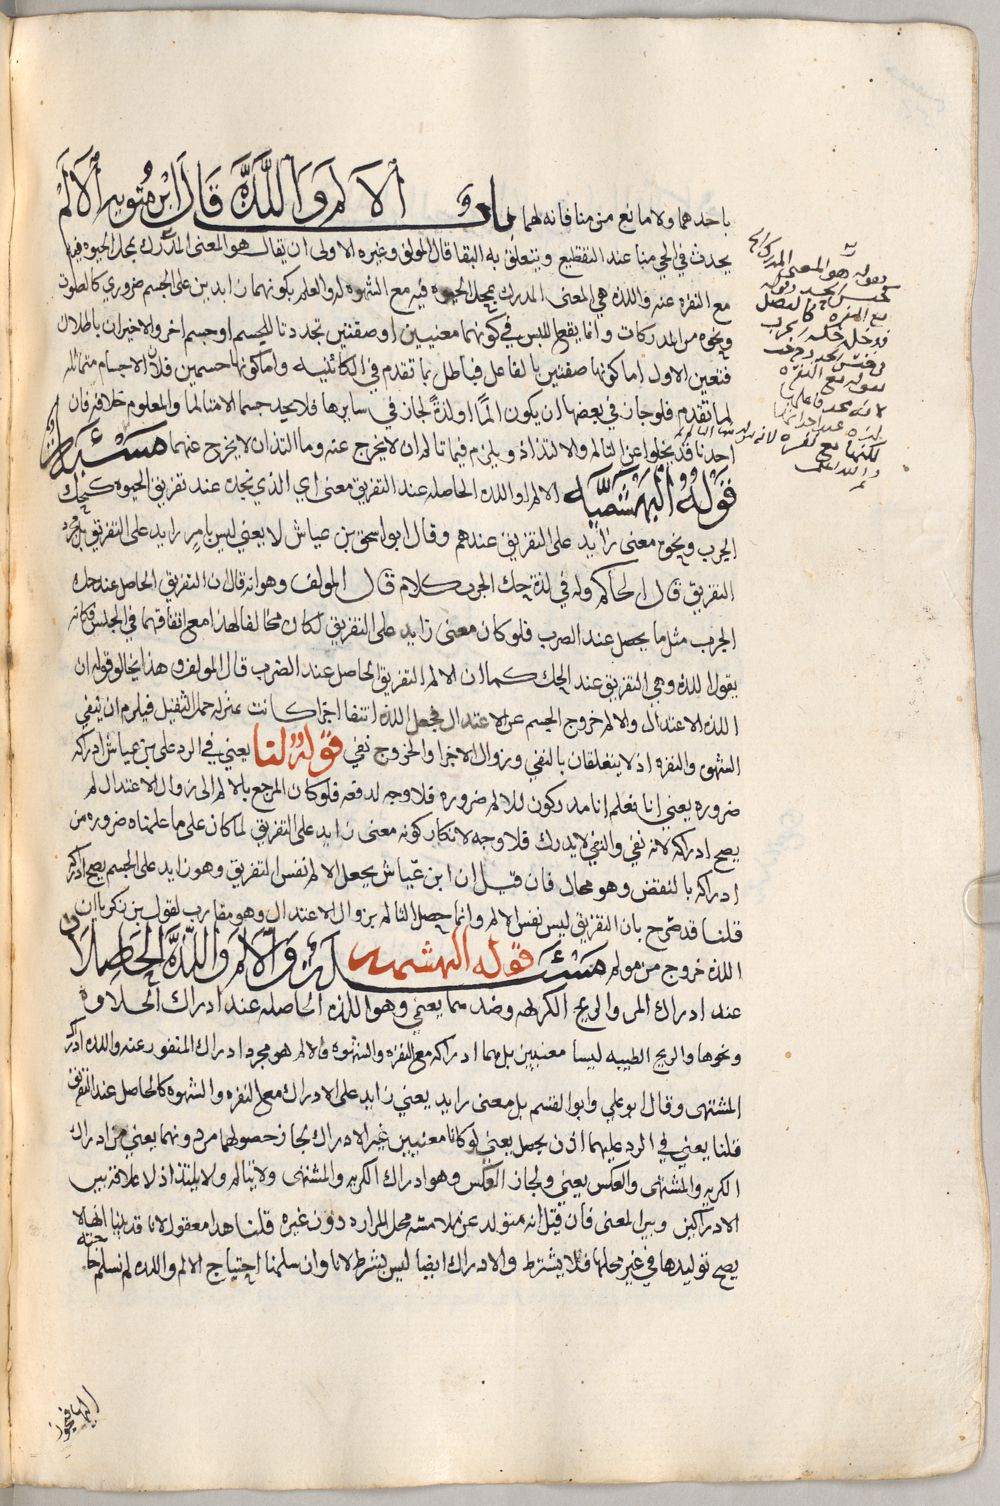 باحدهما ولا مانع من منافاته لهما باب والالم واللذة قال ابن متويه الالم
يحدث في الحي منا عند التقطيع ويتعلق به البقا قال المولف وغيره الاولى ان يقال هو المعنى المدرك بمحل الحيوة فيه
مع النفرة عنه واللذة هي المعنى المدرك بمحل الحيوة فيه مع الشهوة له والعلم بكونهما زايدين على الجسم ضروري كالصوت
ونحوه من المدركات وانما يقع اللبس في كونهما معنيين او صفتين تجددتا للجسم او جسم اخر والاخيران باطلان
فتعين الاول اما كونها صفتين بالفاعل فباطل بما تقدم في الكائنيه واما كونها جسمين فلان الاجسام متماثله
لما تقدم فلو جاز في بعضها ان يكون الماً او لذةً لجاز في سايرها فلا يجد جسما الا متالما والمعلوم خلافه فان
احدنا قد يخلوا عن التالم والالتذاذ ويلزم فيما تالم ان لا يخرج عنه وما التذ ان لا يخرج عنهما مسئلة
قوله البهشمية الالم واللذة الحاصله عند التفريق معنى اي الذي نجده عند تفريق الحيوة كحك
الجرب ونحوه معنى زايد على التفريق عندهم وقال ابو اسحق بن عياش لا يعني ليس بامر زايد على التفريق بل مجرد
التفريق قال الحاكم وله في لذة حك الجرب كلام قال المولف وهو انه قال ان التفريق الحاصل عند حك
الجرب مثل ما يحصل عند الضرب فلو كان معنى زايد على التفريق لكان مخالفا لهذا مع اتفاقهما في الجنس فكانه
يقول اللذة هي التفريق عند الحك كما ان الالم التفريق الحاصل عند الضرب قال المولف وهذا يخالف قوله ان
اللذة الاعتدال والالم خروج الجسم عن الاعتدال فجعل اللذة انتفا اجزا كانت بمنزلة حمل الثقيل فيلزم ان ينفي
الشهوة والنفرة اذ لا يتعلقان بالنفي وزوال الاجزا والخروج نفي قوله لنا يعني في الرد على بن عياش ادراكه
ضرورة يعني انا نعلم انا مدركون للالم ضرورة فلا وجه لدفعه فلو كان المرجع بالالم الى زوال الاعتدال لم
يصح ادراكه لانه نفي والنفي لا يدرك فلا وجه لانكار كونه معنى زايد على التفريق لما كان على ما علمناه ضرورة من
ادراكه بالنقض وهو محال فان قيل ان ابن عياش يجعل الالم نفس التفريق وهو زايد على الجسم يصح ادراكه
قلنا قد صرح بان التفريق ليس نفس الالم وانما حصل التالم بزوال الاعتدال وهو مقارب لقول بن زكريا ان
اللذة خروج من مولم مسئلة قوله البهشميه والالم واللذة الحاصلان
عند ادراك المر والريح الكريهه وضدهما يعني وهو اللذة الحاصله عند ادراك الحلاوة
ونحوها والريح الطيبه ليسا معنيين بل هما ادراكه مع النفرة والشهوة فالالم هو مجرد ادراك المنفور عنه واللذة ادراك
المشتهى وقال ابو علي وابو القسم بل معنى زايد يعني زايد على الادراك مع النفرة والشهوة كالحاصل عند التفريق
قلنا يعني في الرد عليهما اذن يحصل يعني لو كانا معنيين غير الادراك لجاز حصولهما من دونهما يعني من ادراك
الكريه والمشتهى والعكس يعني ولجاز العكس وهو ادراك الكريه والمشتهى ولا يتالم ولا يلتذ اذ لا علاقة بين
الادراكين وبين المعنى فان قيل انه متولد عن ملامسة محل المراره دون غيره قلنا هذا معقول لانا قد بينا انها لا
يصح توليدها في غير محلها فلا يشترط والادراك ايضا ليس بشرط لانا وان سلمنا احتياج الالم واللذة لم نسلم حاجته